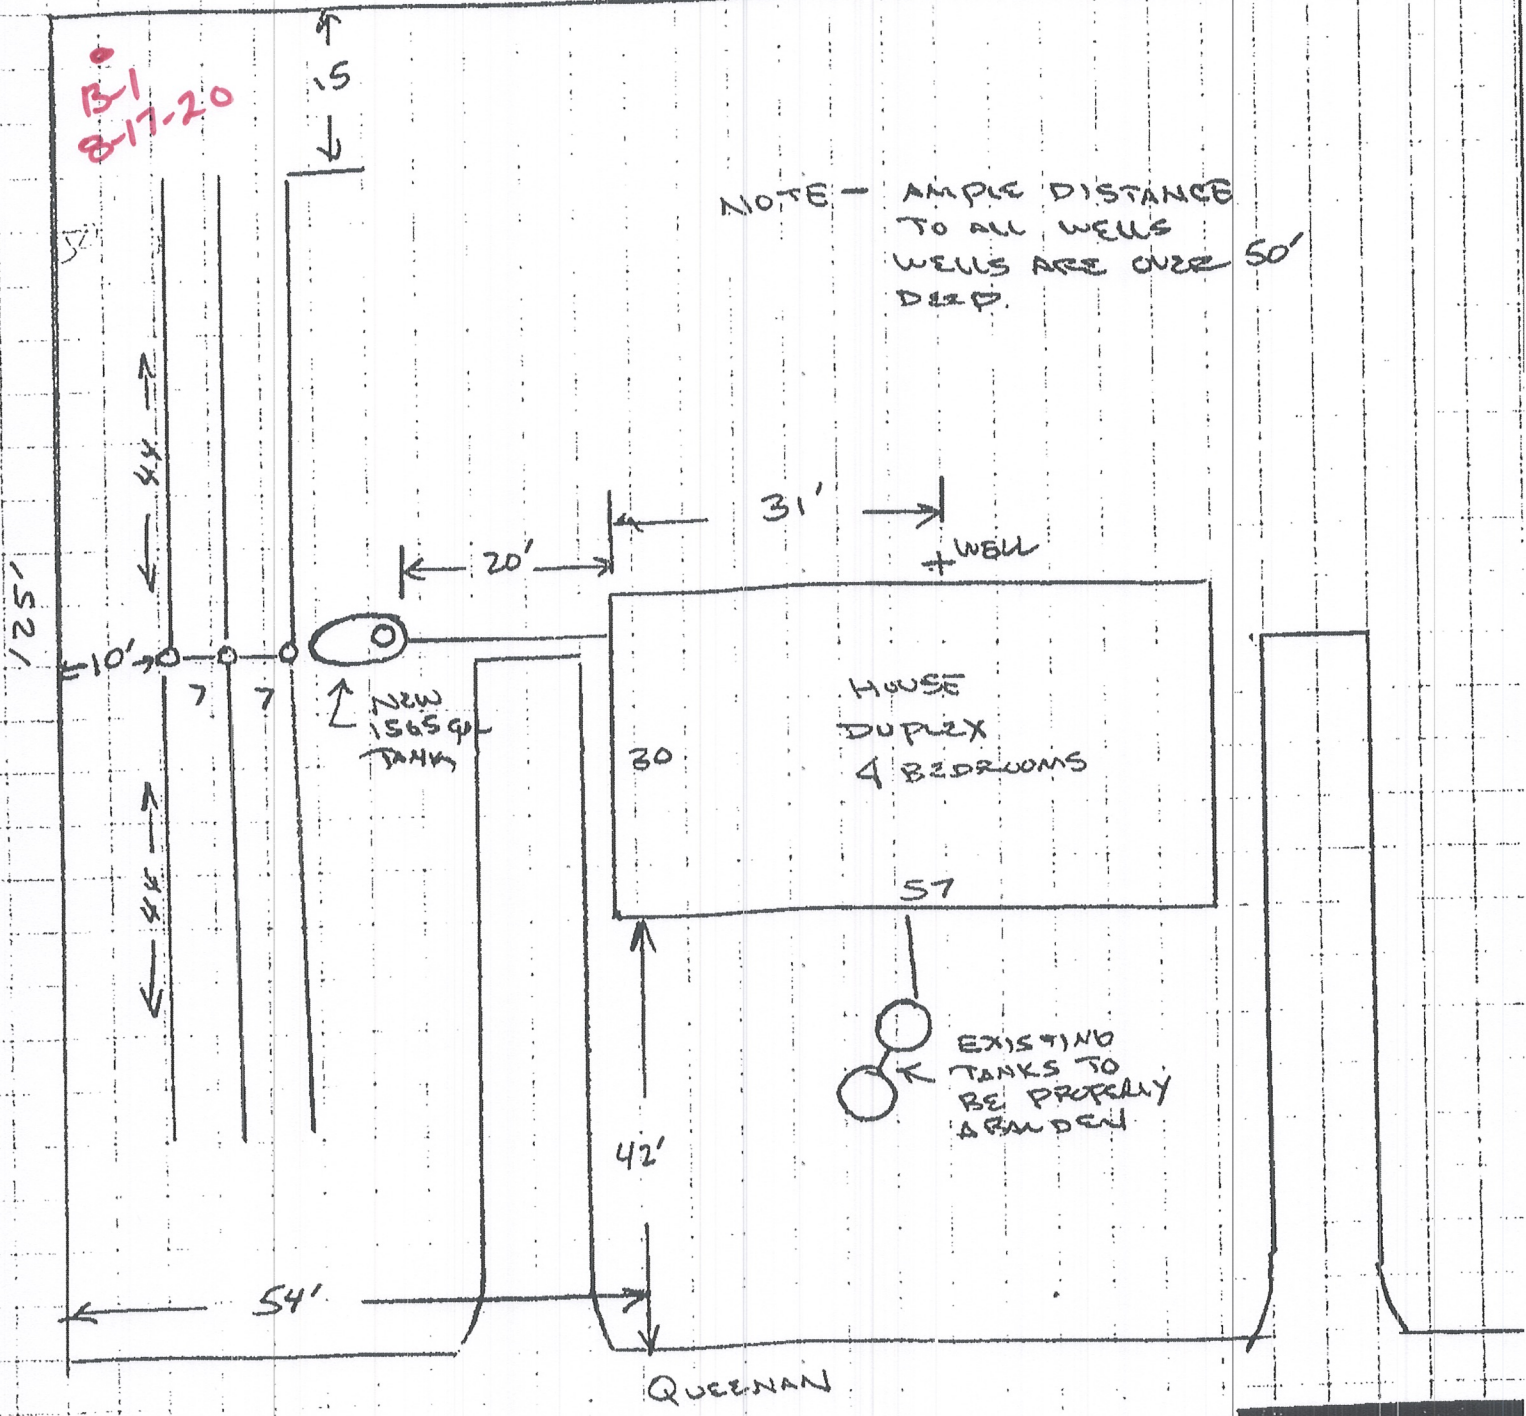 B-1
8-17-20
15
NOTE - AMPLE DISTANCE
TO ALL WELLS
WELLS ARE OVER 50'
DEEP.
44
31'
20'
WELL
125'
10'
7
7
NEW
1565 GAL
TANK
HOUSE
DUPLEX
4 BEDROOMS
30
57
44
EXISTING
TANKS TO
BE PROPERLY
ABANDEN
42'
54'
QUEENAN